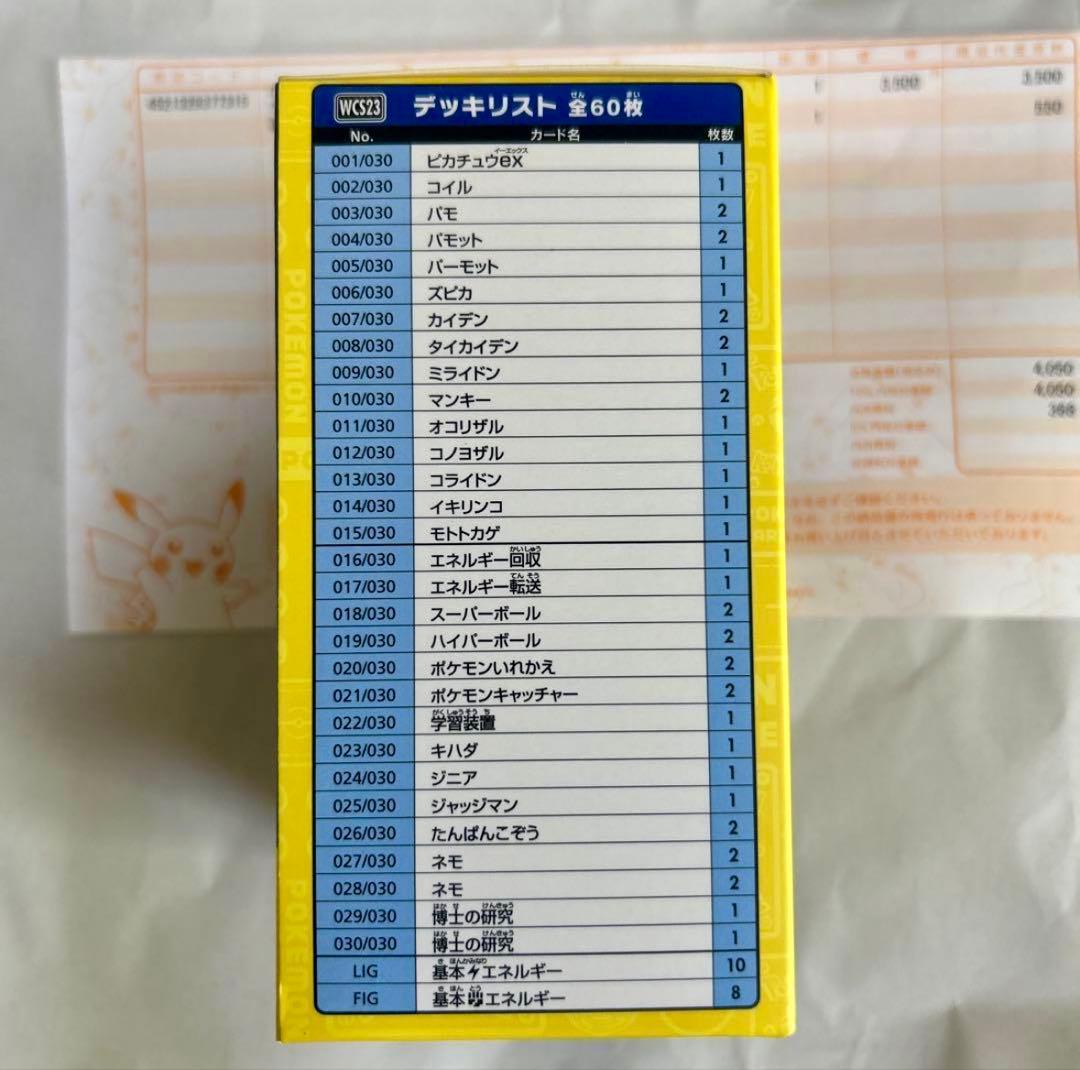 WCS23 デッキリスト 全60枚
No. カード名 枚数
001/030 ピカチュウex 1
002/030 コイル 1
003/030 パモ 2
004/030 パモット 2
005/030 パーモット 1
006/030 ズピカ 1
007/030 カイデン 2
008/030 タイカイデン 2
009/030 ミライドン 1
010/030 マンキー 2
011/030 オコリザル 1
012/030 コノヨザル 1
013/030 コライドン 1
014/030 イキリンコ 1
015/030 モトトカゲ 1
016/030 エネルギー回収 1
017/030 エネルギー転送 1
018/030 スーパーボール 2
019/030 ハイパーボール 2
020/030 ポケモンいれかえ 2
021/030 ポケモンキャッチャー 2
022/030 学習装置 1
023/030 キハダ 1
024/030 ジニア 1
025/030 ジャッジマン 1
026/030 たんぱんこぞう 2
027/030 ネモ 2
028/030 ネモ 2
029/030 博士の研究 1
030/030 博士の研究 1
LIG 基本エネルギー 10
FIG 基本エネルギー 8
POKEMON
POKEMON
3,500 3,500
550
4,050
4,050
368